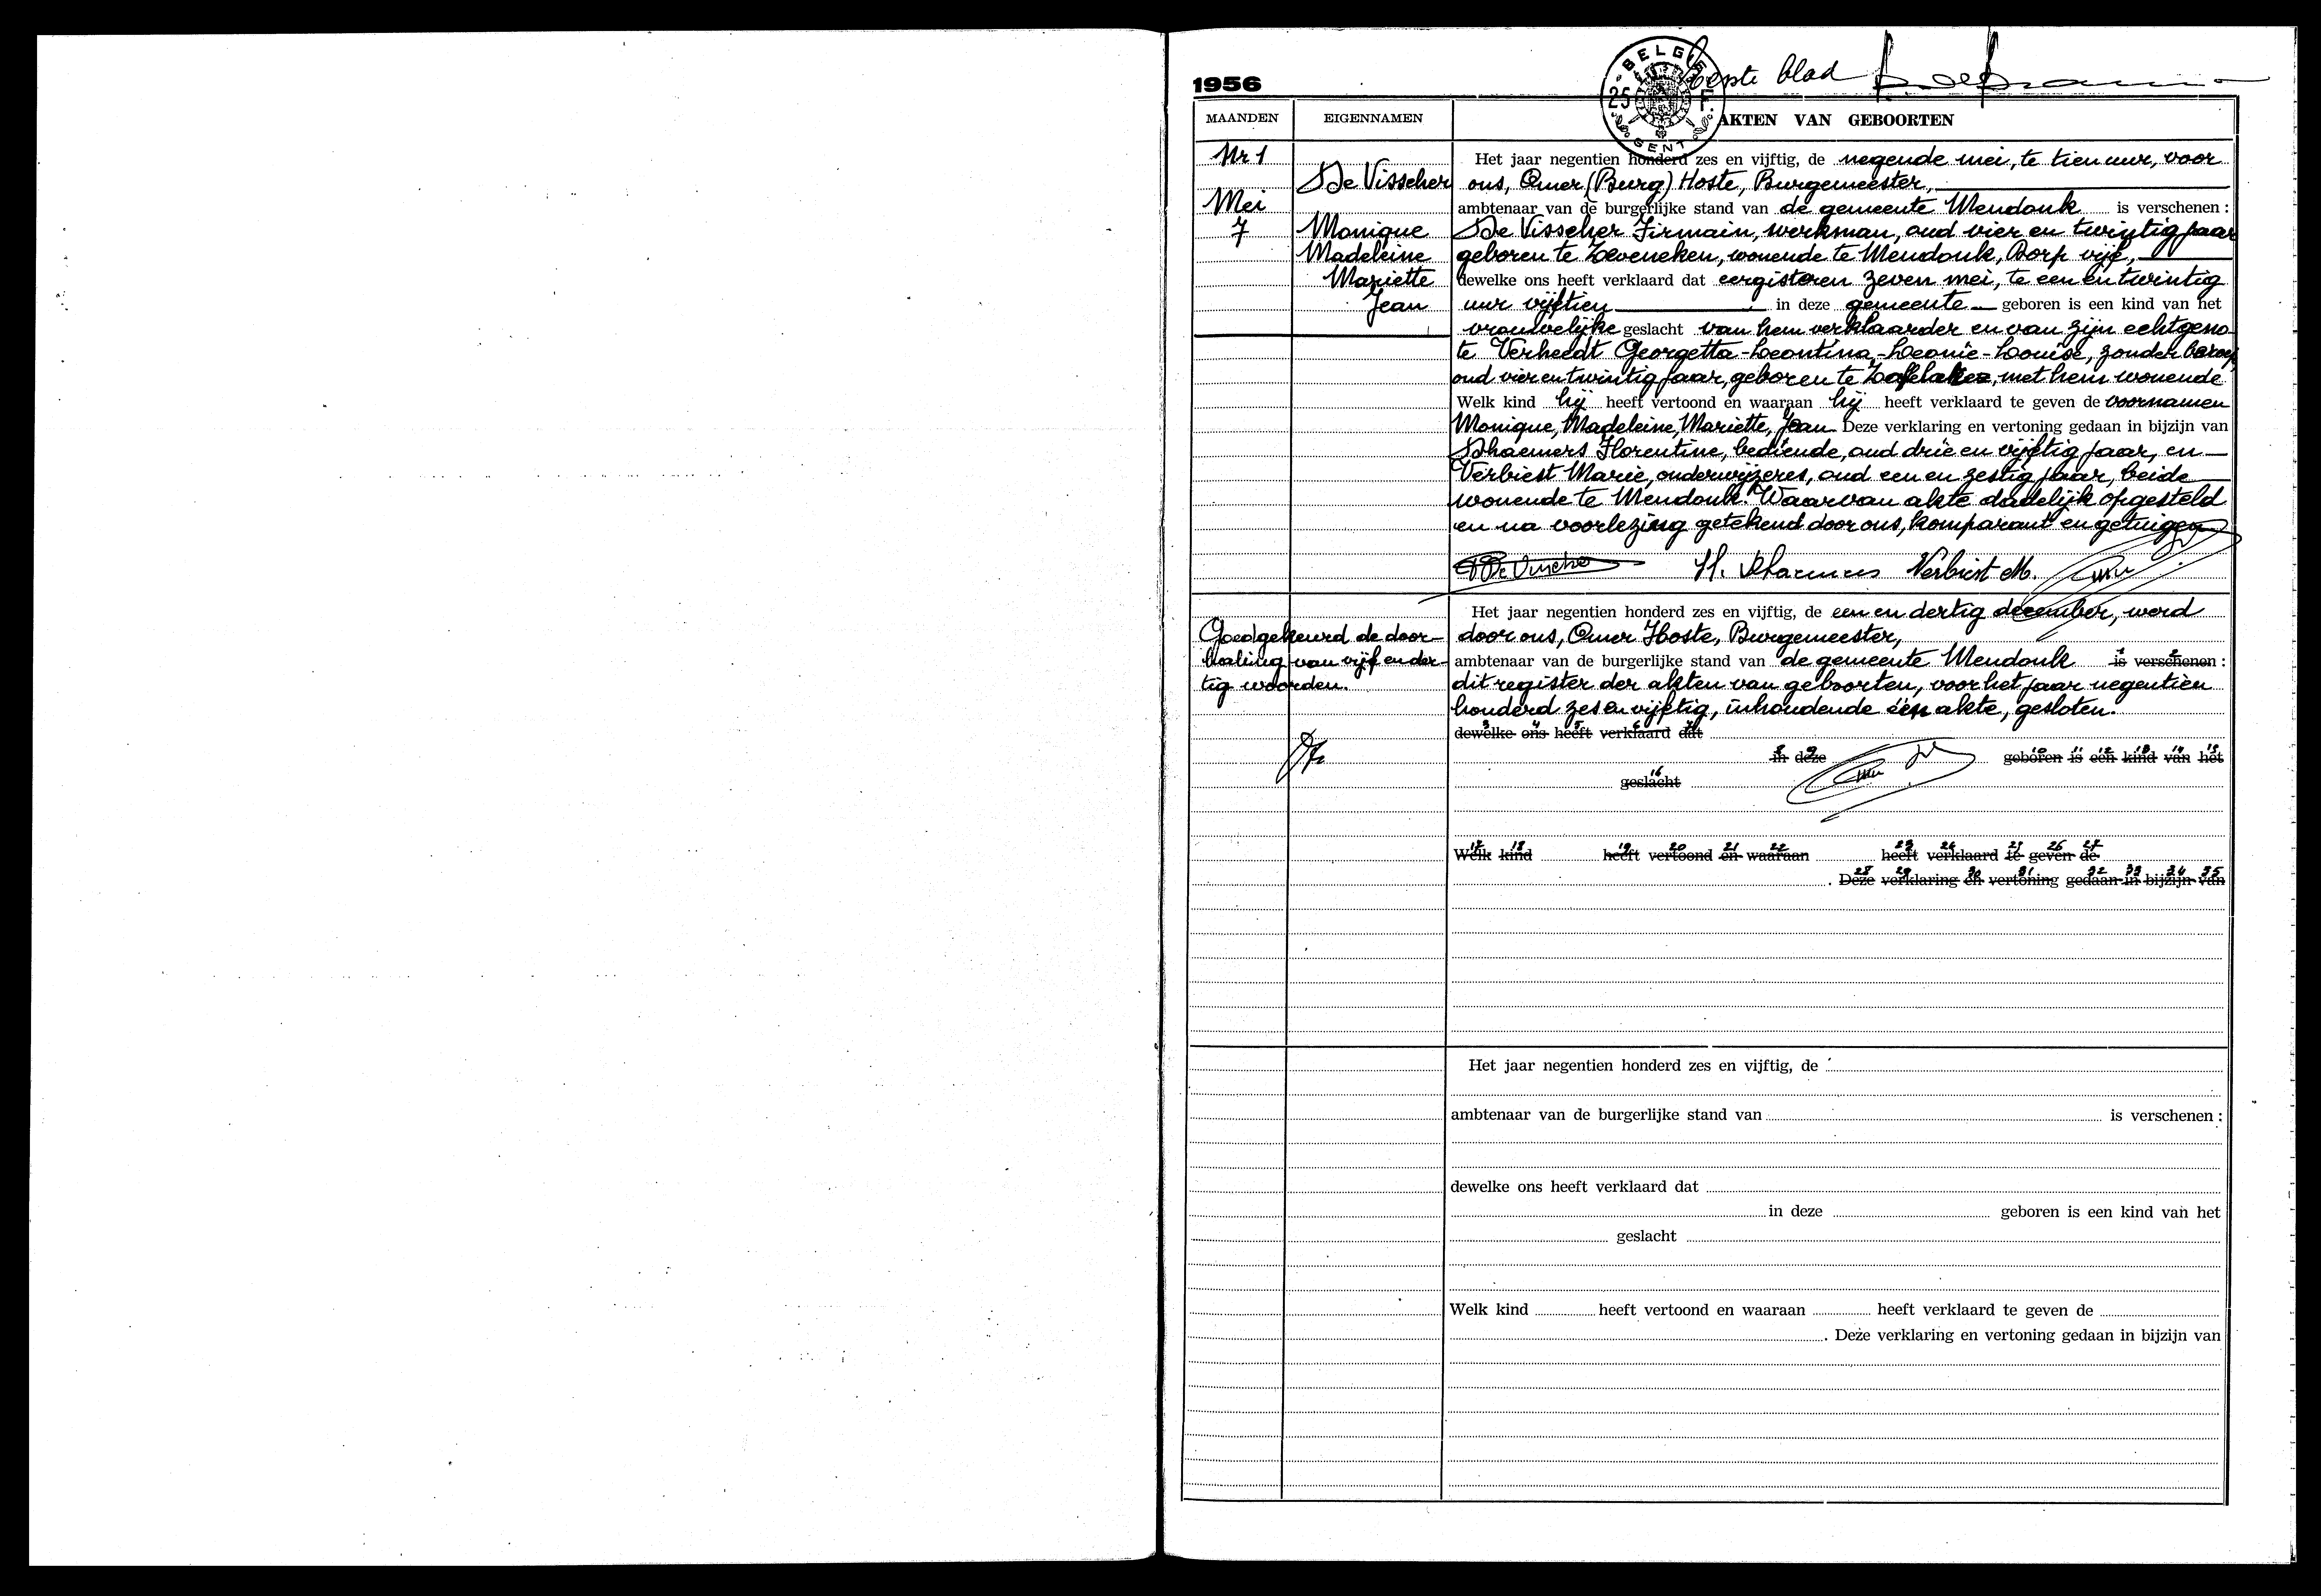 1956
BELGIE 25 F. GENT
Eerste blad
MAANDEN EIGENNAMEN AKTEN VAN GEBOORTEN
Nr 1
De Visscher
Mei
7
Monique
Madeleine
Mariette
Jean
Het jaar negentien honderd zes en vijftig, de negende mei, te tien uur, voor
ons, Omer (Burg) Hoste, Burgemeester,
ambtenaar van de burgerlijke stand van de gemeente Mendonk is verschenen :
De Visscher Firmain, werkman, oud vier en twintig jaar
geboren te Zeveneken, wonende te Mendonk, Dorp vijf,
dewelke ons heeft verklaard dat eergisteren zeven mei, te een en twintig
uur vijftien in deze gemeente geboren is een kind van het
vrouwelijke geslacht van hem verklaarder en van zijn echtgeno-
te Verheedt Georgetta-Leontina-Leonie-Louise, zonder beroep,
oud vier en twintig jaar, geboren te Zaffelare, met hem wonende
Welk kind hij heeft vertoond en waaraan hij heeft verklaard te geven de voornamen
Monique, Madeleine, Mariette, Jean Deze verklaring en vertoning gedaan in bijzijn van
Dhaemers Florentine, bediende, oud drie en vijftig jaar, en
Verbiest Marie, onderwijzeres, oud een en zestig jaar, beide
wonende te Mendonk. Waarvan akte dadelijk opgesteld
en na voorlezing getekend door ons, komparant en getuigen
Verbiest M.
Goedgekeurd de door-
haling van vijf en der-
tig woorden.
Het jaar negentien honderd zes en vijftig, de een en dertig december, werd
door ons, Omer Hoste, Burgemeester,
ambtenaar van de burgerlijke stand van de gemeente Mendonk is verschenen :
dit register der akten van geboorten, voor het jaar negentien
honderd zes en vijftig, inhoudende één akte, gesloten.
dewelke ons heeft verklaard dat
in deze geboren is een kind van het
geslacht
Welk kind heeft vertoond en waaraan heeft verklaard te geven de
. Deze verklaring en vertoning gedaan in bijzijn van
Het jaar negentien honderd zes en vijftig, de
ambtenaar van de burgerlijke stand van is verschenen :
dewelke ons heeft verklaard dat
in deze geboren is een kind van het
geslacht
Welk kind heeft vertoond en waaraan heeft verklaard te geven de
. Deze verklaring en vertoning gedaan in bijzijn van